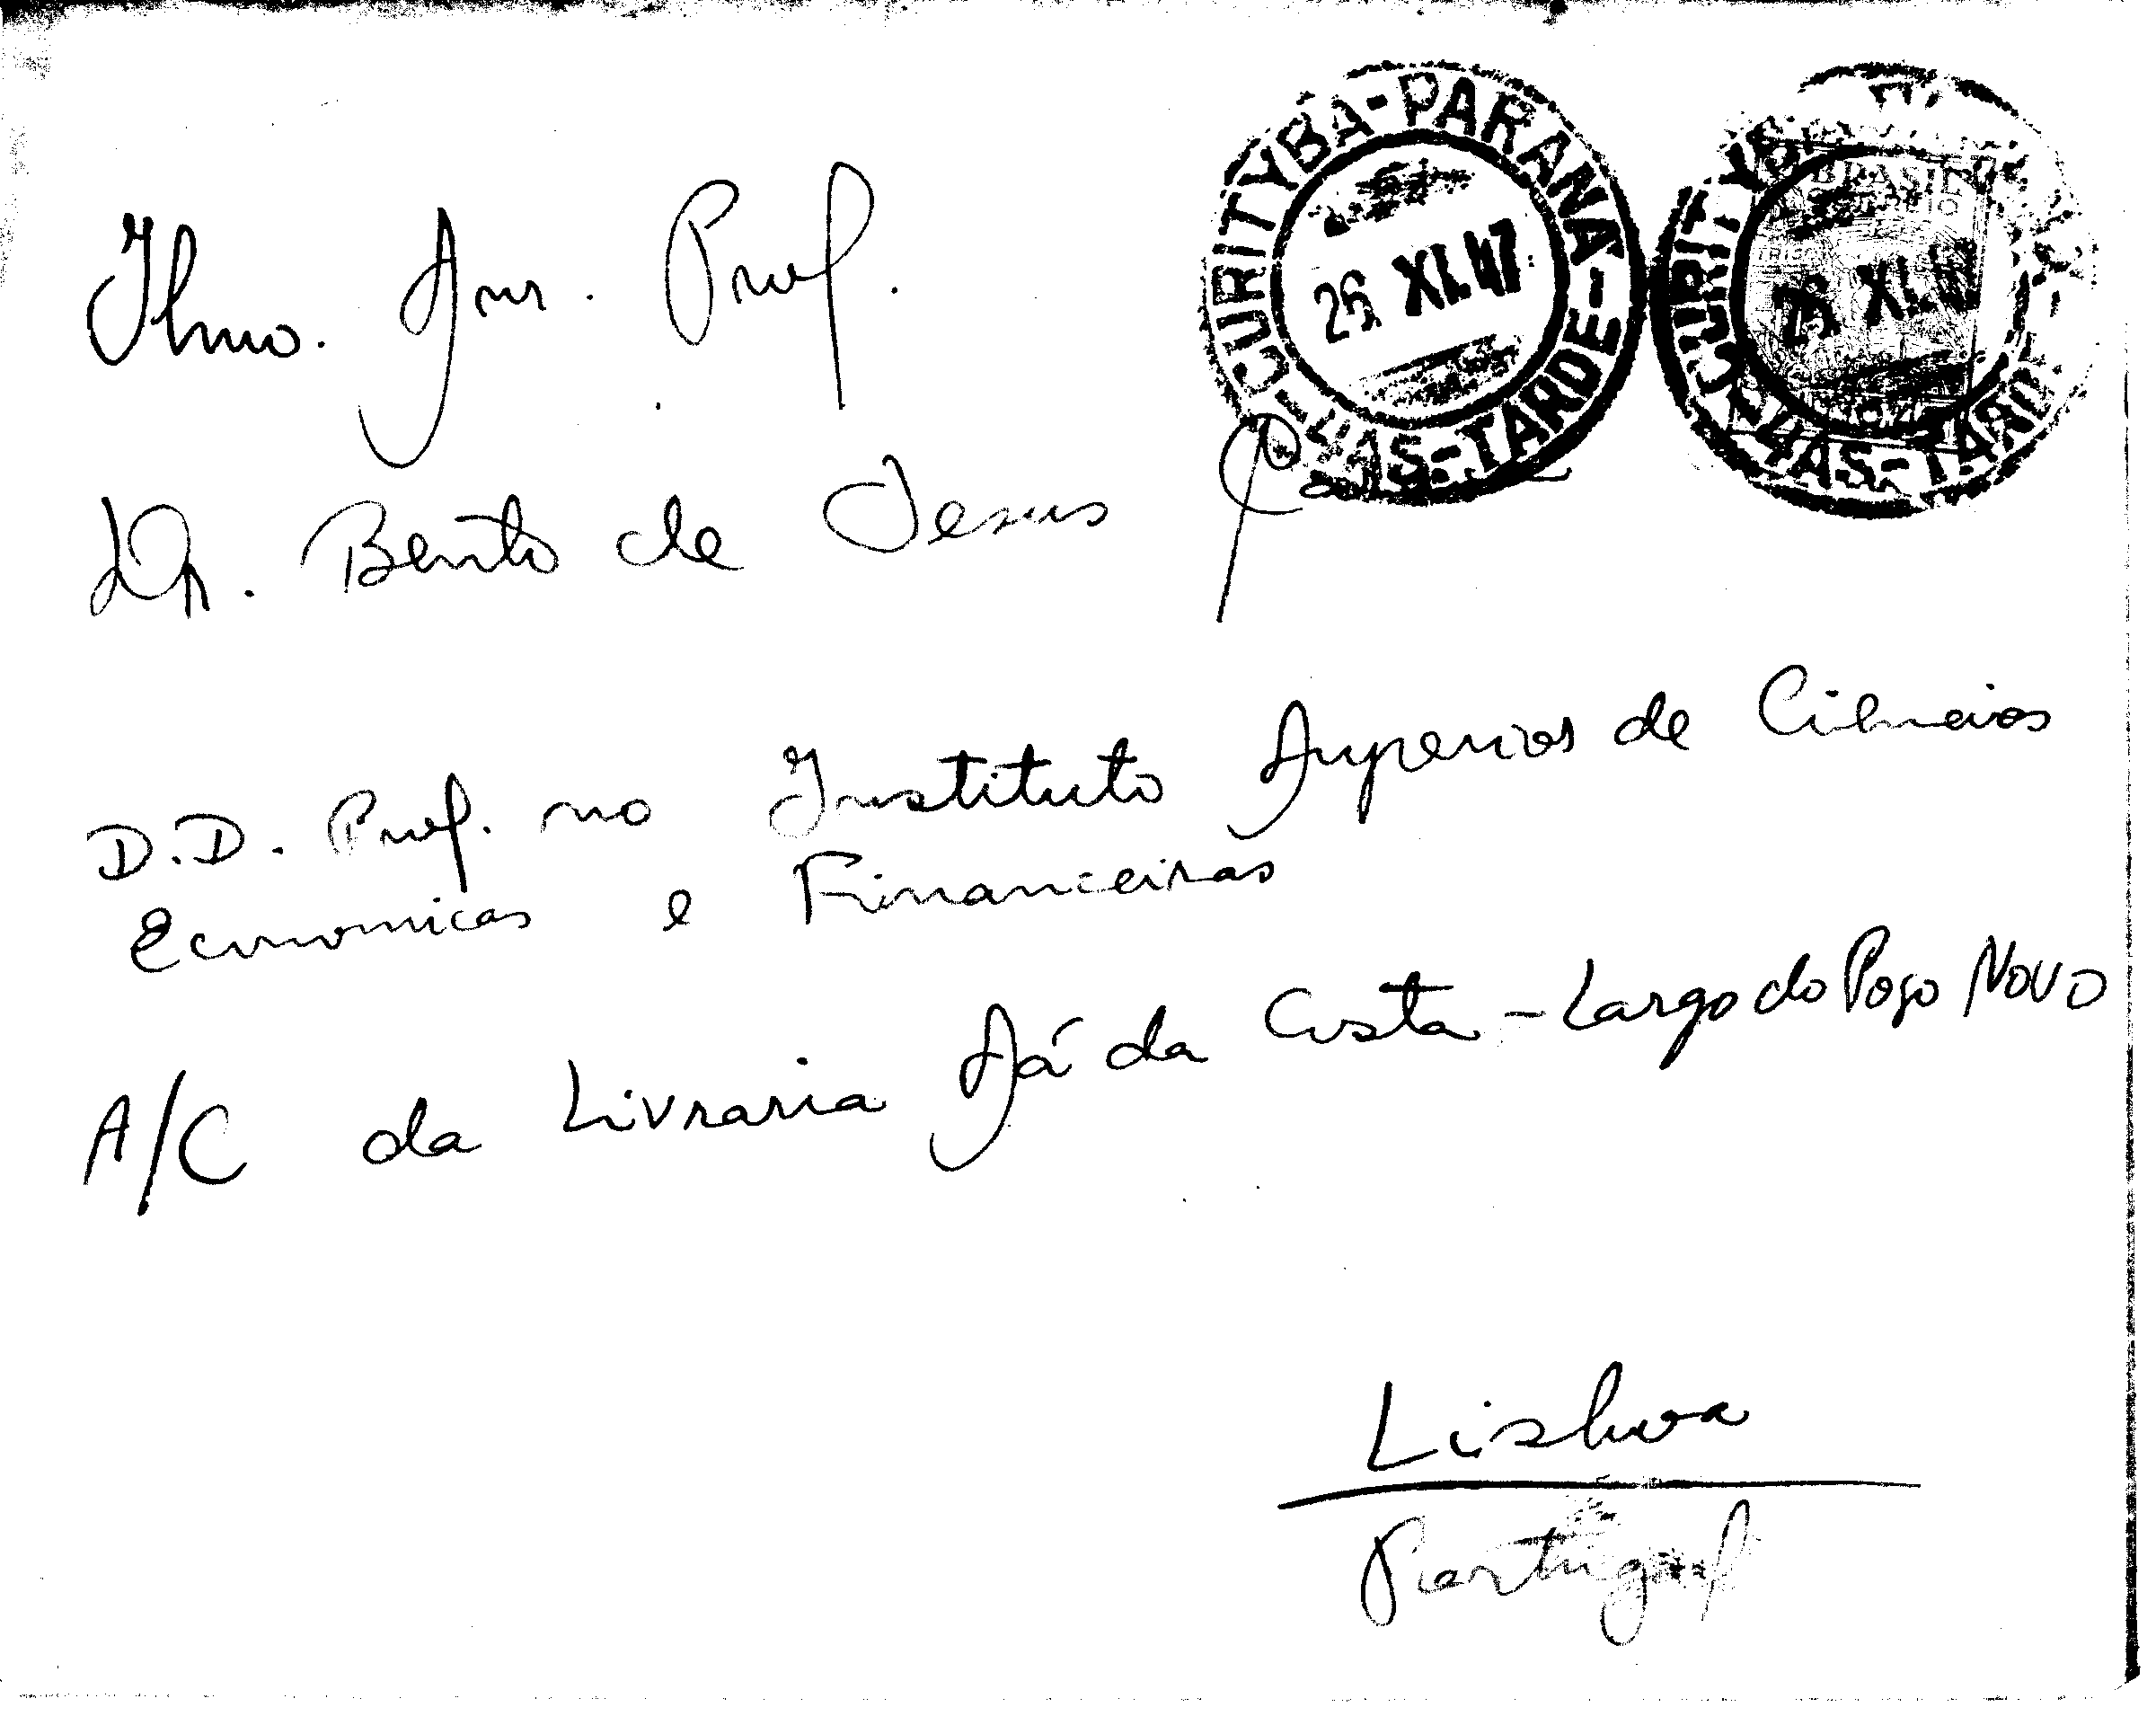 CURITYBA-PARANA-
26 XI.47
-TARDE-
CURITYB
BRASIL
26 XI.47
Ilmo. Snr. Prof.
Dr. Bento de Jesus
D.D. Prof. no Instituto Superior de Ciências
Economicas e Financeiras
A/C da Livraria Sá da Costa - Largo do Poço Novo
Lisboa
Portugal